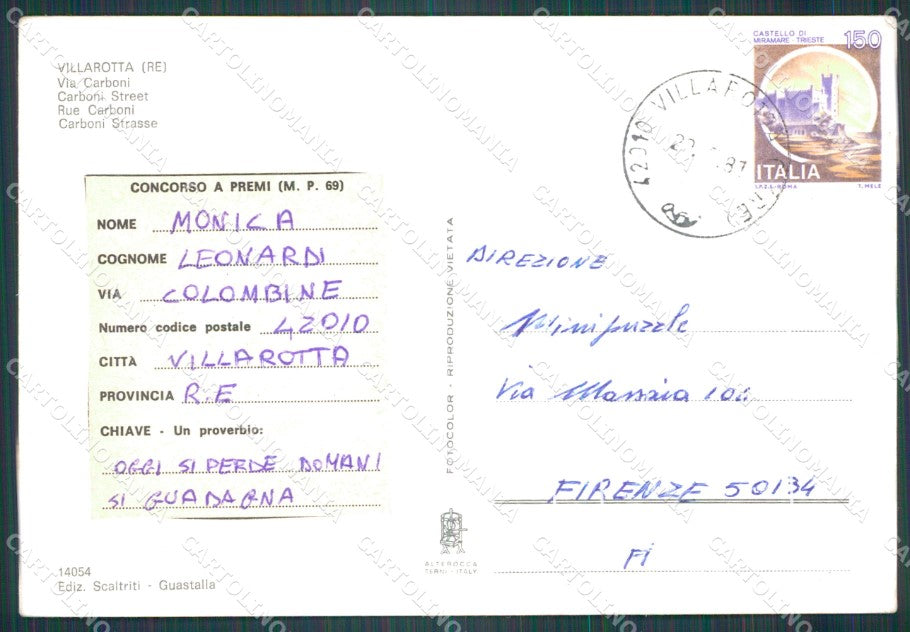 VILLAROTTA (RE)
Via Carboni
Carboni Street
Rue Carboni
Carboni Strasse
CONCORSO A PREMI (M. P. 69)
NOME MONICA
COGNOME LEONARDI
VIA COLOMBINE
Numero codice postale 42010
CITTÀ VILLAROTTA
PROVINCIA R.E
CHIAVE - Un proverbio:
OGGI SI PERDE DOMANI
SI GUADAGNA
14054
Ediz. Scaltriti - Guastalla
FOTOCOLOR - RIPRODUZIONE VIETATA
ALTEROCCA
TERNI - ITALY
CASTELLO DI
MIRAMARE - TRIESTE
150
ITALIA
I.P.Z.S. - ROMA T. MELE
42010 VILLAROTTA (RE)
DIREZIONE
Minipuzzle
Via Massaia
FIRENZE 50134
FI
CARTOLINOMANIA